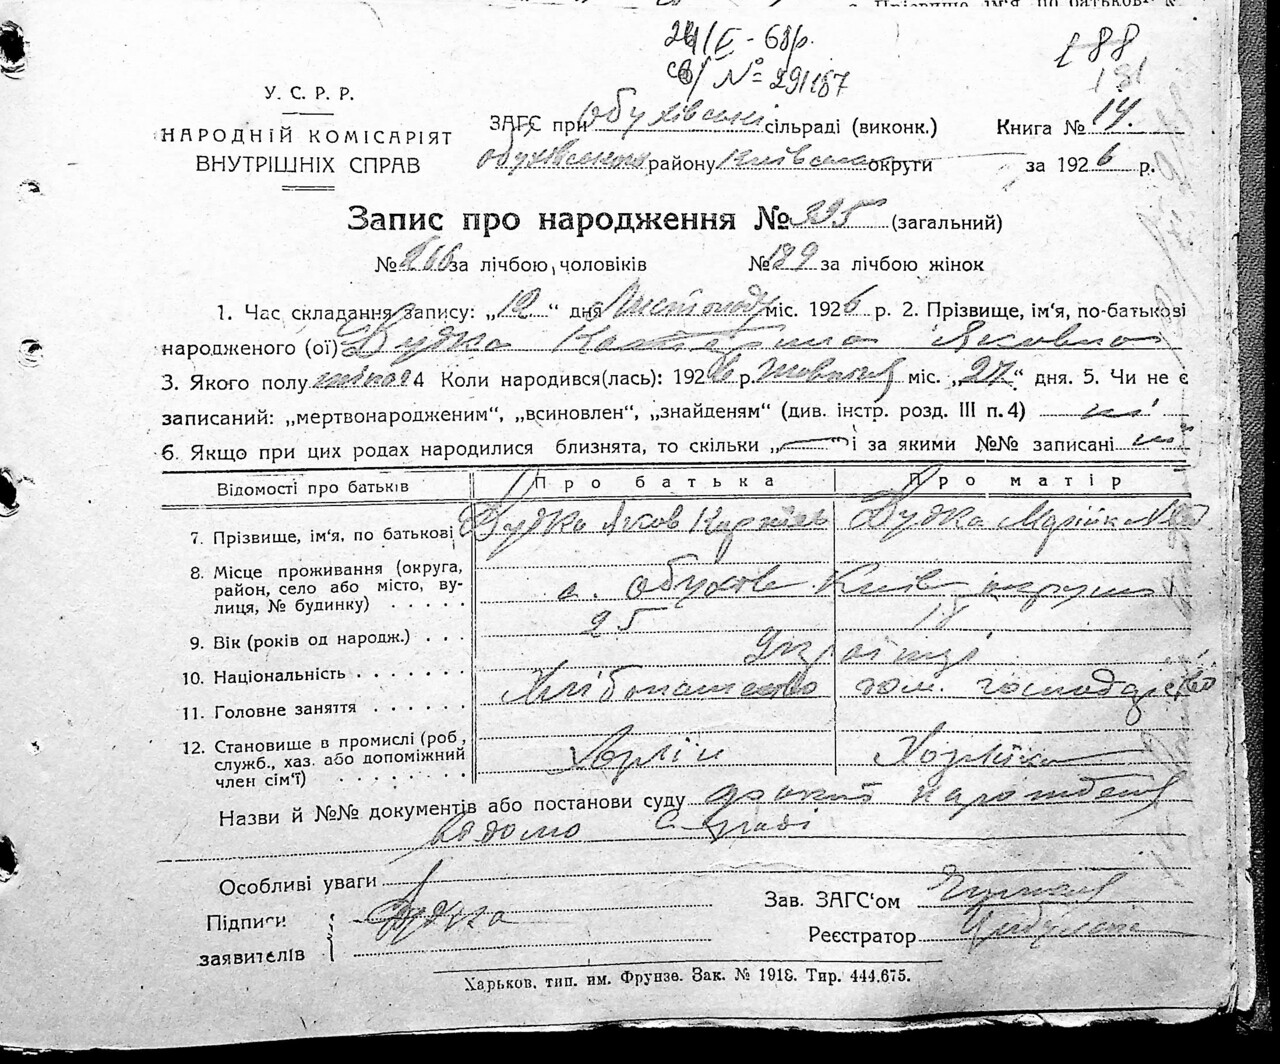 24/V-68р.
св/ №=291187
188
181
У. С. Р. Р.
НАРОДНІЙ КОМІСАРІЯТ
ВНУТРІШНІХ СПРАВ
ЗАГС при Обухівські сільраді (виконк.)
Книга № 14.
району округи
за 1926 р.
Запис про народження № 325 (загальний)
№ 166 за лічбою чоловіків № 189 за лічбою жінок
1. Час складання запису: „12“ дня Листопаду міс. 1926 р. 2. Прізвище, ім'я, по-батькові
народженого (ої) Дудка Катерина Яковна
3. Якого полу 4 Коли народився(лась): 1926 р. Жовтня міс. „27“ дня. 5. Чи не є
записаний: „мертвонародженим“, „всиновлен“, „знайденям“ (див. інстр. розд. III п. 4) ні
6. Якщо при цих родах народилися близнята, то скільки „—“ і за якими №№ записані ні
Відомості про батьків
Про батька
Про матір
7. Прізвище, ім'я, по батькові
Дудка Яков
Дудка Марійка
8. Місце проживання (округа,
район, село або місто, ву-
лиця, № будинку) . . . . .
с. Обухов Київ округи
9. Вік (років од народж.) . . .
25
18
10. Національність . . . . . . .
Українці
11. Головне заняття . . . . . .
Хлібопашество
дом. господарство
12. Становище в промислі (роб.,
служб., хаз. або допоміжний
член сім'ї) . . . . . . . .
Хозяїн
Хозяйка
Назви й №№ документів або постанови суду факт народження
відомо С-раді
Особливі уваги
Підписи
заявителів
Дудка
Зав. ЗАГС'ом
Реєстратор
Харьков, тип. им. Фрунзе. Зак. № 1918. Тир. 444.675.